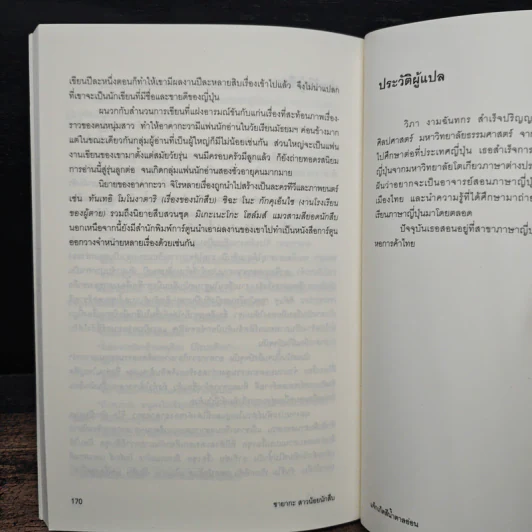 เขียนปีละหนึ่งตอนก็ทำให้เขามีผลงานปีละหลายสิบเรื่องเข้าไปแล้ว จึงไม่น่าแปลก
ที่เขาจะเป็นนักเขียนที่มีชื่อและขายดีของญี่ปุ่น
ผนวกกับสำนวนการเขียนที่แฝงอารมณ์ขันกับแก่นเรื่องที่สะท้อนภาพเรื่อง-
ราวของคนหนุ่มสาว ทำให้อาคากะวะมีแฟนนักอ่านในวัยเรียนมัธยมฯ ค่อนข้างมาก
แต่ในขณะเดียวกันกลุ่มผู้อ่านที่เป็นผู้ใหญ่ก็มีไม่น้อยเช่นกัน ส่วนใหญ่จะเป็นแฟน
งานเขียนของเขามาตั้งแต่สมัยวัยรุ่น จนมีครอบครัวมีลูกแล้ว ก็ยังถ่ายทอดรสนิยม
การอ่านนี้สู่รุ่นลูกต่อ จนเกิดกลุ่มแฟนนักอ่านสองชั่วอายุคนมากมาย
นิยายของอาคากะวะ จิโรหลายเรื่องถูกนำไปสร้างเป็นละครทีวีและภาพยนตร์
เช่น ทันเทอิ โมโนงาตาริ (เรื่องของนักสืบ) ชิฉะ โนะ กักคุเอ็นไซ (งานโรงเรียน
ของผู้ตาย) รวมถึงนิยายสืบสวนชุด มิเกะเนะโกะ โฮล์มส์ แมวสามสียอดนักสืบ
นอกเหนือจากนี้ยังมีสำนักพิมพ์การ์ตูนนำเอาผลงานของเขาไปทำเป็นหนังสือการ์ตูน
ออกวางจำหน่ายหลายเรื่องด้วยเช่นกัน
170
ซายากะ สาวน้อยนักสืบ
ประวัติผู้แปล
วิภา งามฉันทกร สำเร็จปริญญ
ศิลปศาสตร์ มหาวิทยาลัยธรรมศาสตร์ จาก
ไปศึกษาต่อที่ประเทศญี่ปุ่น เธอสำเร็จการ
ญี่ปุ่นจากมหาวิทยาลัยโตเกียวภาษาต่างประ
ฝันว่าอยากจะเป็นอาจารย์สอนภาษาญี่ปุ่
เมืองไทย และนำความรู้ที่ได้ศึกษามาถ่าย
เรียนภาษาญี่ปุ่นมาโดยตลอด
ปัจจุบันเธอสอนอยู่ที่สาขาภาษาญี่ป
หอการค้าไทย